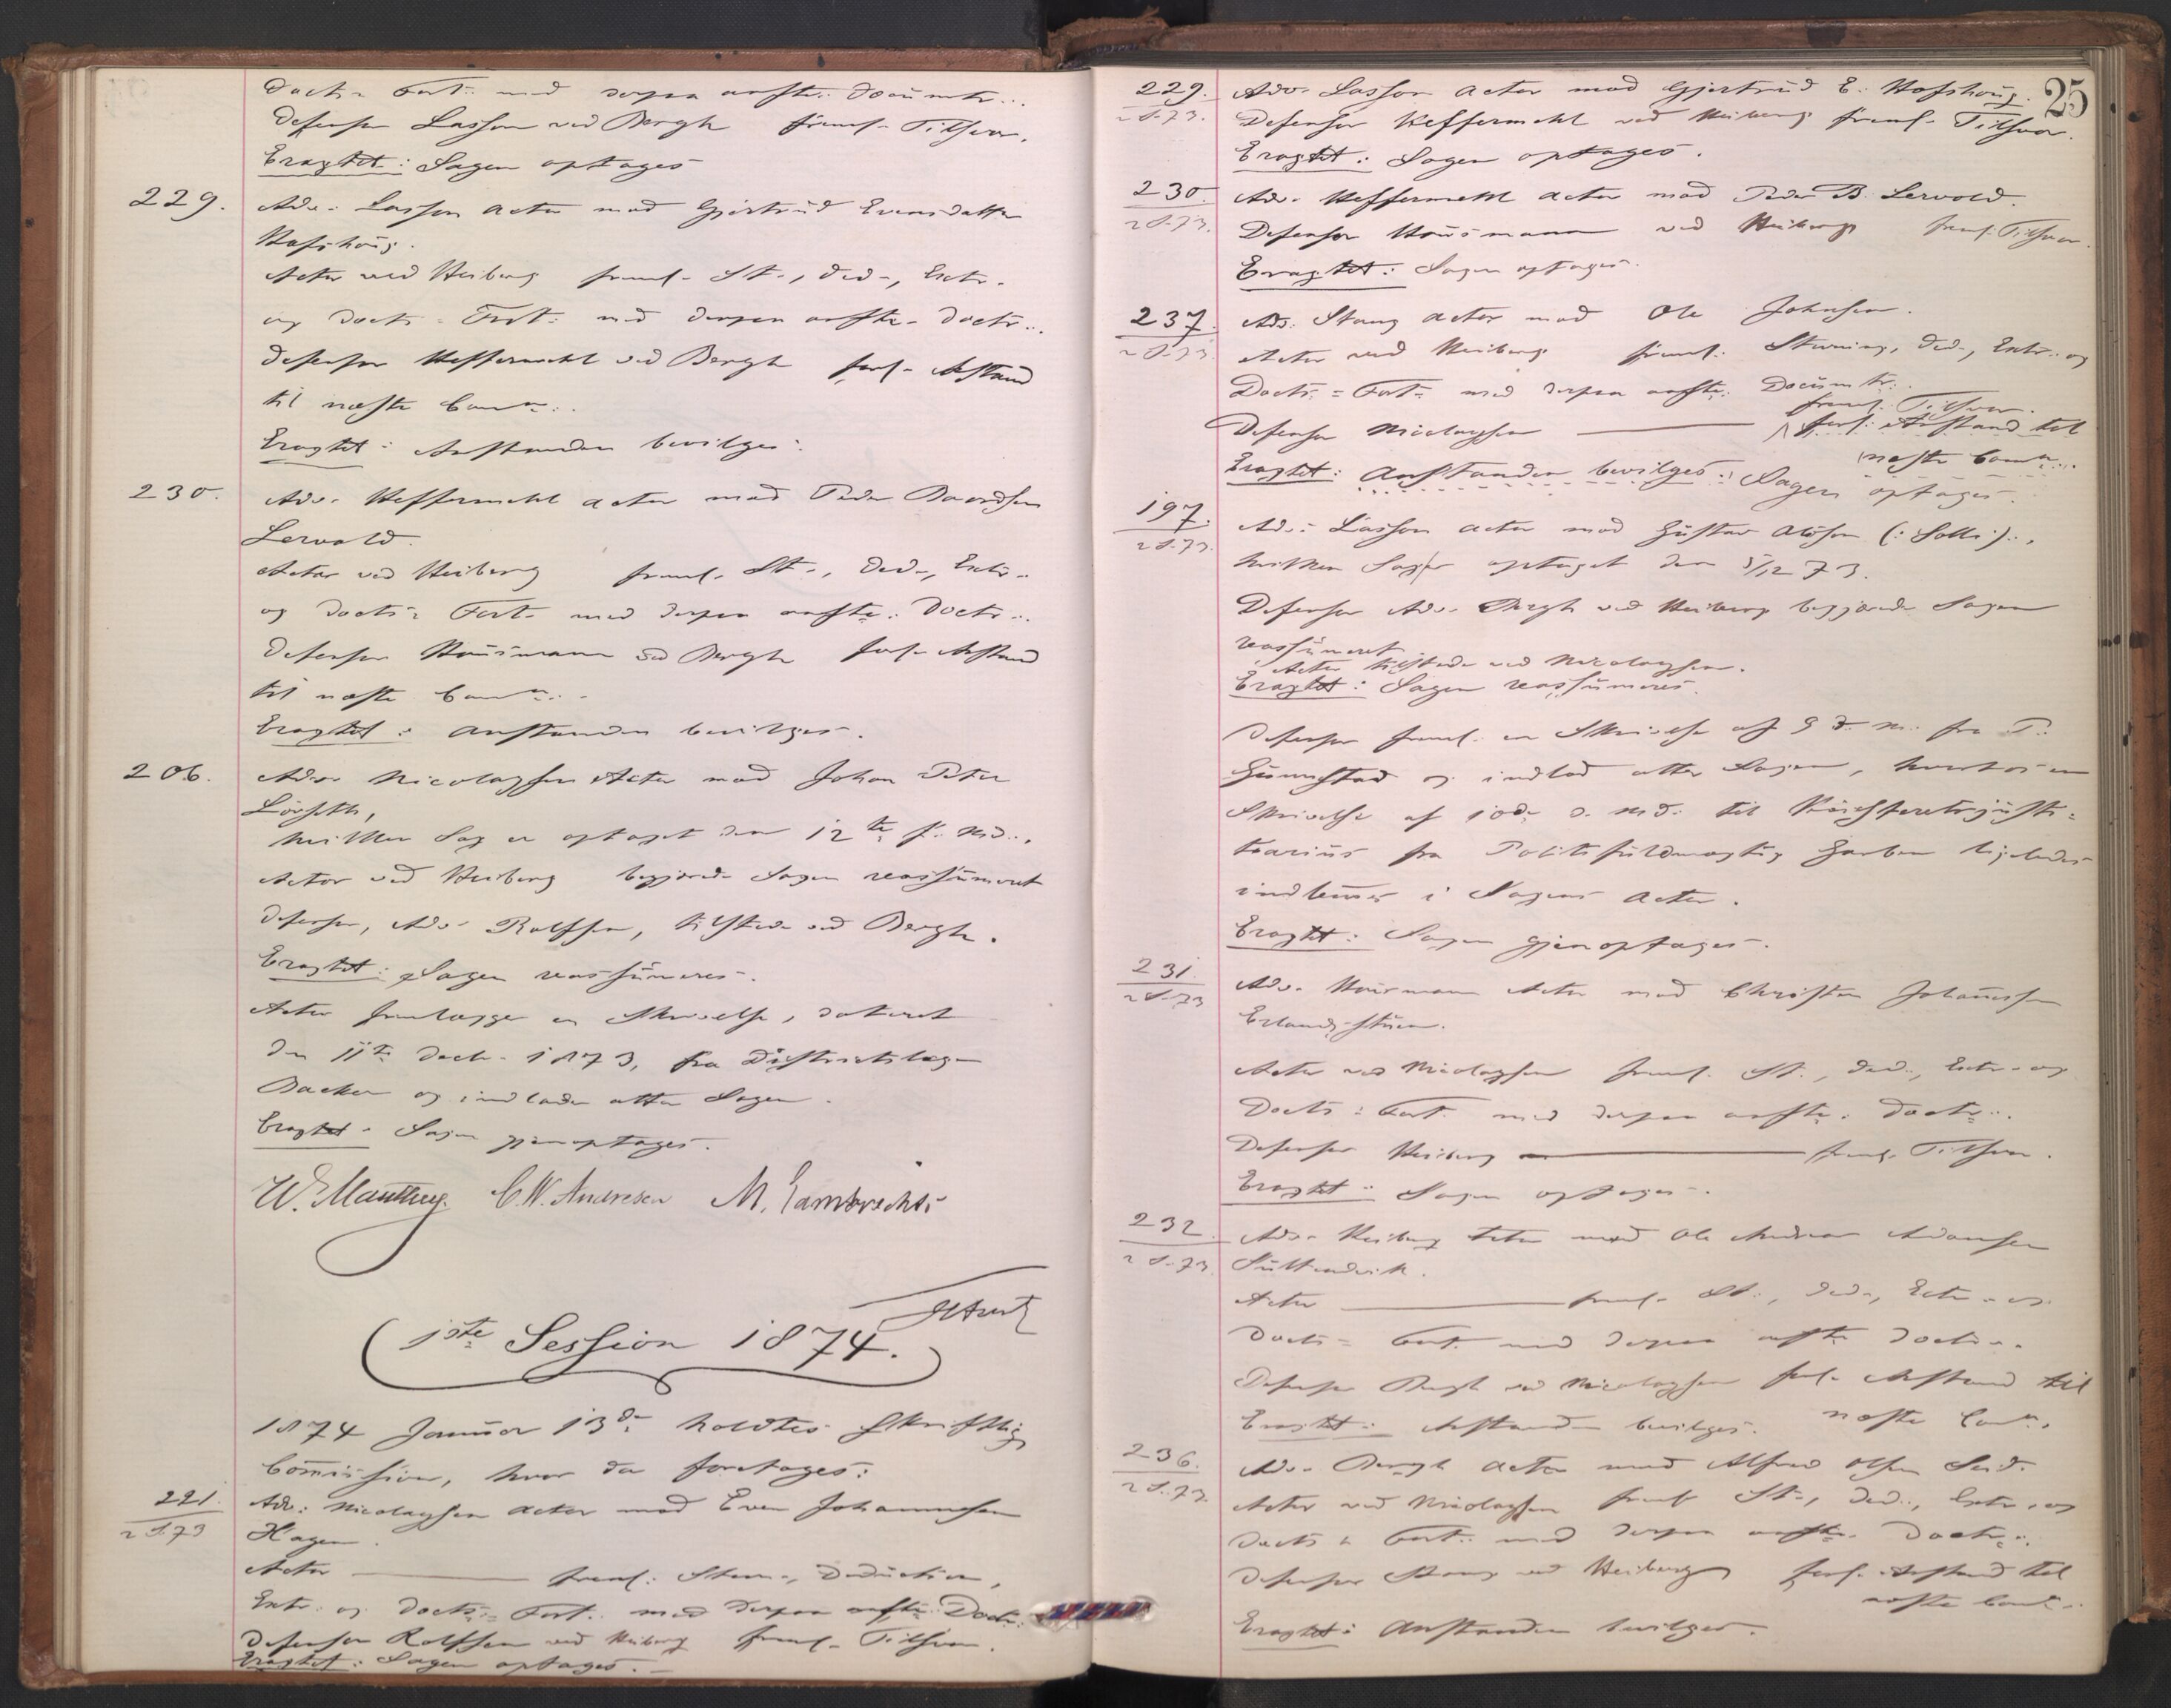 Docts = Fort: med derpaa anfte: Documtr...
Defensor Lasson ved Bergh freml. Tilsvar.
Eragtet: Sagen optages
229. Adv. Lasson Actor mod Gjertrud Evensdatter
Hofshoug.
Actor ved Heiberg freml. St., Ded., Extr.
og Docts = Fort: med derpaa anfte. Doctr...
Defensor Heffermehl ved Bergh forl. Anstand
til næste Comn:.
Eragtet: Anstanden bevilges.
230. Adv. Heffermehl Actor mod Peder Baardsen
Lervold.
Actor ved Heiberg freml. St., Ded., Extr.
og Docts = Fort. med derpaa anfte. Doctr...
Defensor Housmann ved Bergh forl. Anstand
til næste Comn:.
Eragtet: Anstanden bevilges.
206. Adv. Nicolaysen Actor mod Johan Peter
Lövseth,
hvilken Sag er optaget den 12te f. Md..
Actor ved Heiberg begjærede Sagen reassumeret
Defensor, Adv. Rolfsen, tilstede ved Bergh.
Eragtet: Sagen reassumeres.
Actor fremlægger en Skrivelse, dateret
den 11te Decbr. 1873, fra Districtslæge
Backer og indlader atter Sagen.
Eragtet: Sagen gjenoptages.
W. Manthey. C. W. Andresen M. Lambrechts
1ste Session 1874.
1874 Januar 13de holdtes skriftlig
Commission, hvor da foretages:
221. Adv: Nicolaysen Actor mod Even Johannesen
2 S. 73 Hagen.
Actor — freml: Stevn., Deduction,
Extr. og Docts = Fort. med derpaa anfte. Doctr.
Defensor Rolfsen ved Heiberg freml. Tilsvar.
Eragtet: Sagen optages. —
25
229. Adv. Lasson Actor mod Gjertrud E. Hofshoug.
2 S. 73. Defensor Heffermehl ved Heiberg freml. Tilsvar.
Eragtet: Sagen optages.
230. Adv. Heffermehl Actor mod Peder B. Lervold.
2 S. 73. Defensor Housmann ved Heiberg freml. Tilsvar.
Eragtet: Sagen optages.
237. Adv. Stang Actor mod Ole Johnsen.
2 S. 73. Actor ved Heiberg freml: Stevning, Ded., Extr. og
Docts = Fort. med derpaa anfte. Documtr.
freml. Tilsvar.
Defensor Nicolaysen — forl: Anstand til
næste Comn:.
Eragtet: Anstanden bevilges: Sagen optages.
197. Adv. Lasson Actor mod Gustav Olsen (: Solli):,
2 S. 73. hvilken Sag er optaget den 5/12 73.
Defensor Adv. Bergh ved Heiberg begjærede Sagen
reassumeret
Actor tilstede ved Nicolaysen.
Eragtet: Sagen reassumeres.
Defensor freml. en Skrivelse af 9 d. M. fra P.
Gunnestad og indlod atter Sagen, hvorhos en
Skrivelse af 10de d. Md. til Høiesteretsjusti=
tiarius fra Politifuldmægtig Garben ligeledes
indlemmes i Sagens Acter.
Eragtet: Sagen gjenoptages.
231. Adv. Housmann Actor mod Christen Johannesen
2 S. 73 Erlandsstuen.
Actor ved Nicolaysen freml. St., Ded., Extr. og
Docts = Fort. med derpaa anfte. Doctr...
Defensor Heiberg — freml. Tilsvar.
Eragtet: Sagen optages.
232. Adv. Heiberg Actor mod Ole Andreas Adamsen
2 S. 73.
Actor — freml. St., Ded., Extr. og
Docts = Fort. med derpaa anfte Doctr.
Defensor Bergh ved Nicolaysen forl. Anstand til
Eragtet: Anstanden bevilges. næste Comn.
236. Adv. Bergh Actor mod Alfred Olsen
2 S. 73. Actor ved Nicolaysen freml. St., Ded., Extr. og
Docts = Fort. med derpaa anfte. Doctr.
Defensor Stang ved Heiberg forl. Anstand til
næste Comn.
Eragtet: Anstanden bevilges.